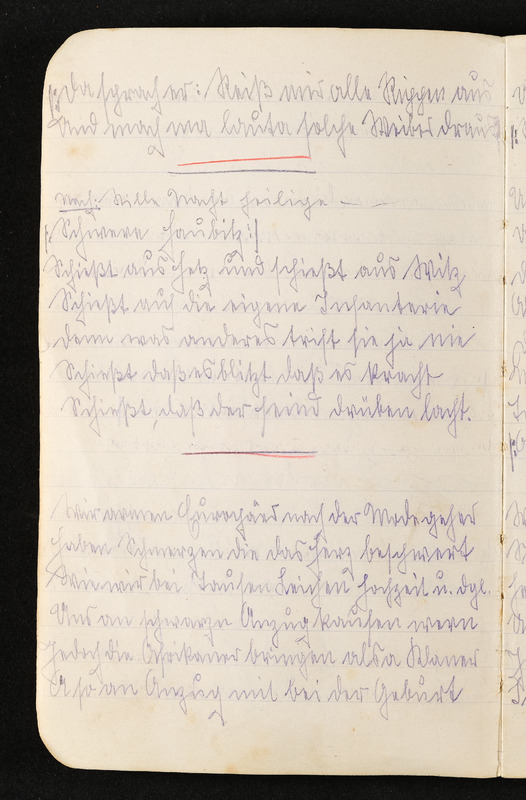 |: Da sprach er: Reiß mir alle Rippen aus
Und mach ma lauta solche Weiber draus :|
Nach: Stille Nacht heilige —
|: Schwere Haubitz :|
Schießt aus Hetz und schießt aus Witz
Schießt auf die eigene Infanterie
denn was anderes trift sie ja nie
Schießt daß es blitzt daß es kracht
Schießt, daß der Feind drüben lacht.
Wir armen Europäer nach der Mode geher
haben Schmerzen die das Herz beschwert
Wie wir bei Taufen Leichen Hochzeit u. dgl.
Uns an schwarzn Anzug kaufen wern
Jedoch die Afrikaner bringen als a Klaner
A so an Anzug mit bei der Geburt